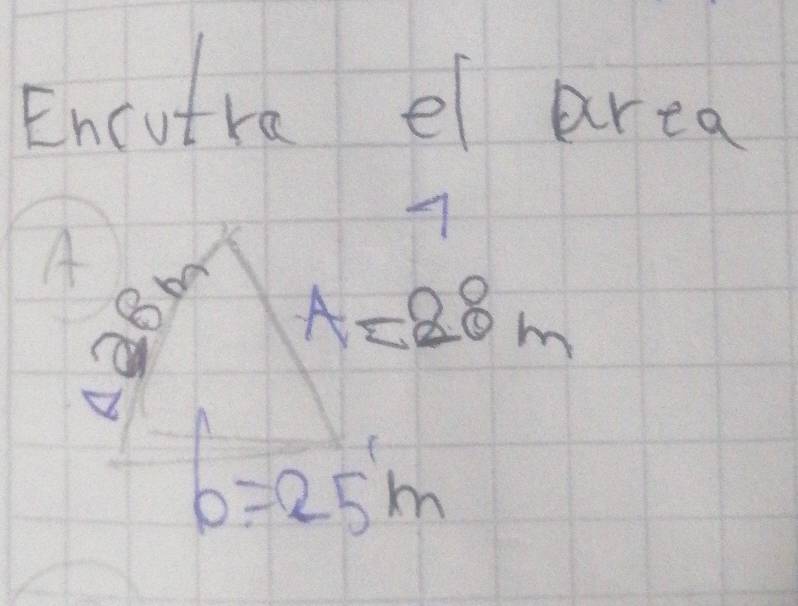 Encutra el area
1
A
28 m
A = 28 m
b = 25 m